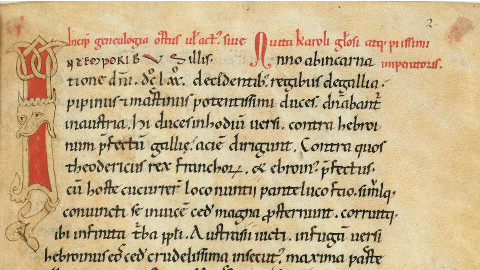 2
Incip genealogia ortus ul act, siue Vita karoli glosi atq, piissimi
TEMPORIBUS illis. Anno abincarna imperatoris.
tione dni. dc lxx. decedentib, regibus degallia.
pipinus & martinus potentissimi duces dnabant
inaustria, hi duces inhodiu uersi. contra hebroi
num pfectum gallie, acie dirigunt. Contra quos
theodericus rex franchoꝝ. & ebroin, pfectus.
cu hoste cucurrer loco nuntupante lucofcio. simulq,
conuncti se inuice cede magna psternunt. corruitq,
ibi infinita tba ppli. Austrasii uicti. infugam uersi
hebroinus eos cede crudelissima insecut, maxima parte